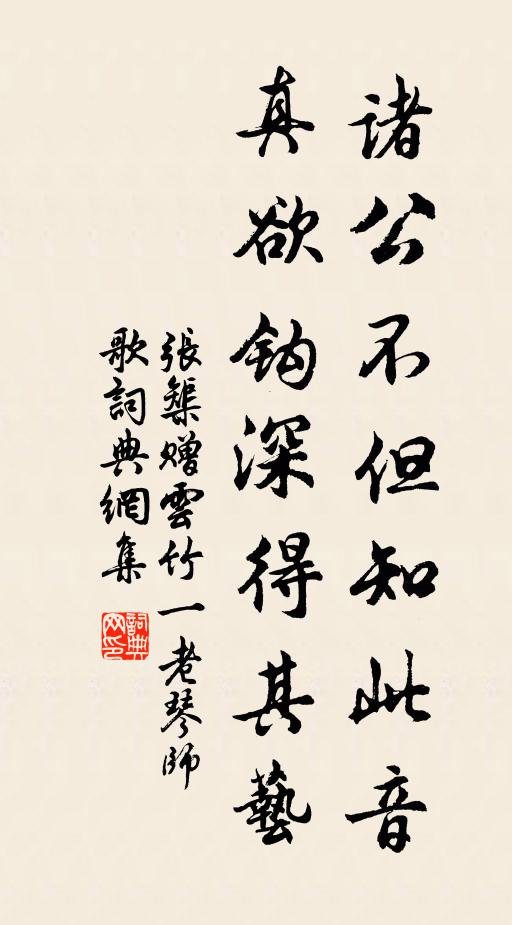 諸公不但知此音
真欲鈎深得其藝
張榘赠雲竹一老琴師
歌詞典網集
詞典网印